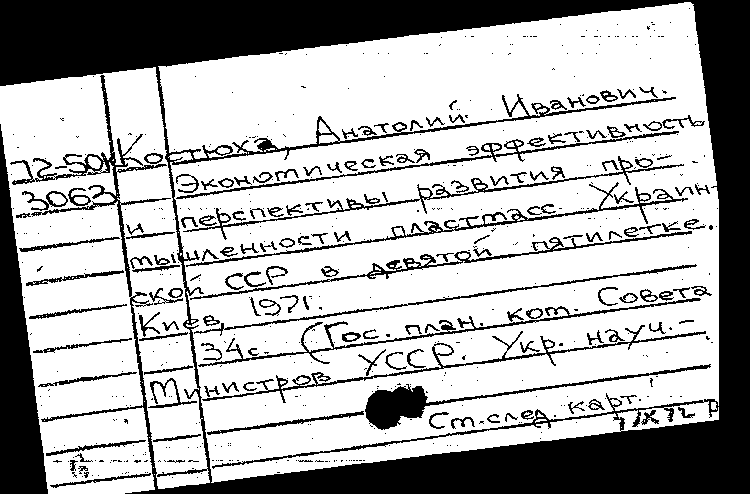 72-50к Костюха, Анатолий Иванович.
3063 Экономическая эффективность
и перспективы развития про-
мышленности пластмасс Украин-
ской ССР в девятой пятилетке.
Киев, 1971.
34с. (Гос. план. ком. Совета
Министров УССР. Укр. науч.-
См. след. карт.